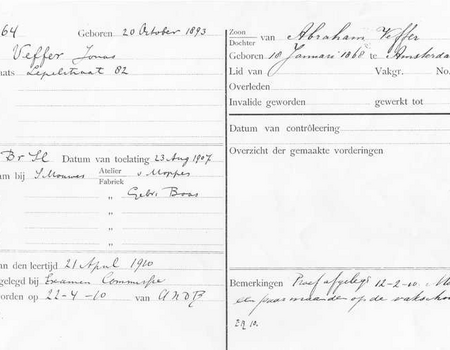 64
Geboren 20 October 1893
Veffer Jonas
aats Lepelstraat 82
Br Sl Datum van toelating 23 Aug 1907
am bij S Mouwes Atelier v Moppes
Fabriek
" Gebr. Boas
"
"
an den leertijd 21 April 1910
gelegd bij Examen Commissie
orden op 22-4-10 van ANDB
Zoon van Abraham Veffer
Dochter
Geboren 18 Januari 1868 te Amsterda
Lid van Vakgr. No.
Overleden
Invalide geworden gewerkt tot
Datum van contrôleering
Overzicht der gemaakte vorderingen
Bemerkingen Proef afgelegd 12-2-10. Mo
een paar maanden op de vakscho